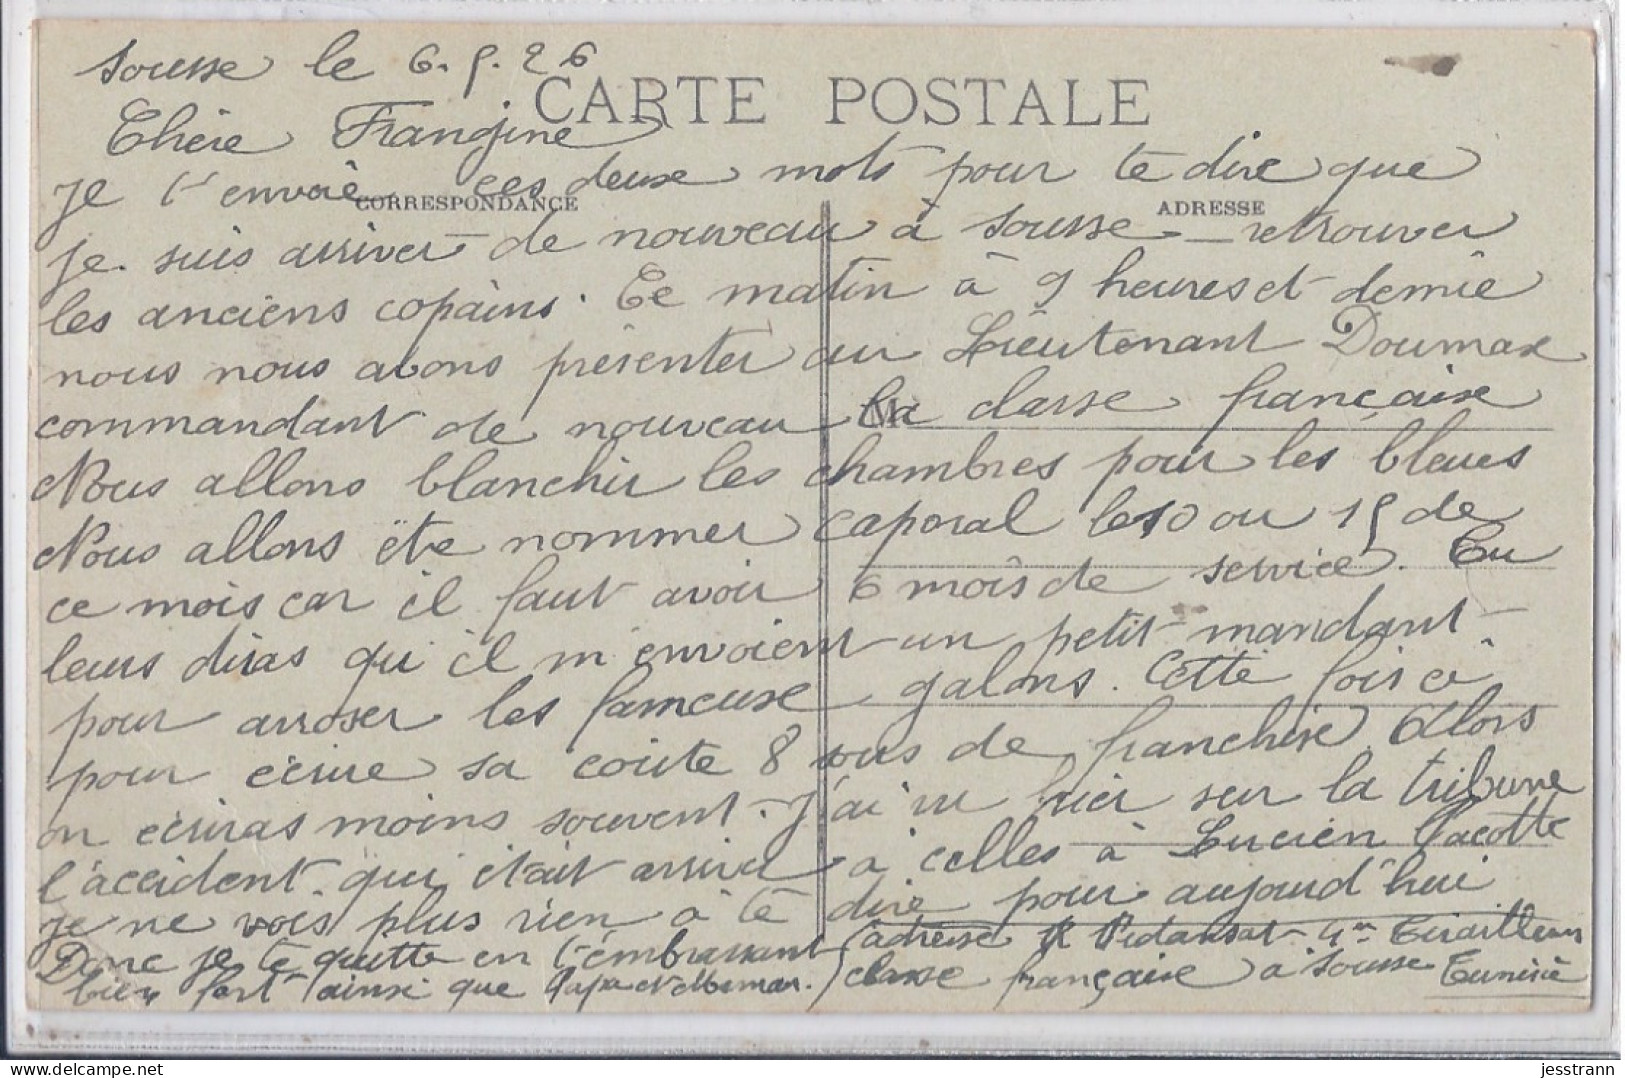 Sousse le 6.5.26
CARTE POSTALE
Chère Frangine
je t'envoie ces deux mots pour te dire que
CORRESPONDANCE
ADRESSE
je suis arriver de nouveau à Sousse retrouver
les anciens copains. Ce matin à 9 heures et demie
nous nous avons présenter au Lieutenant Doumax
commandant de nouveau la classe française
Nous allons blanchir les chambres pour les bleues
Nous allons être nommer caporal le 10 ou 15 de
ce mois car il faut avoir 6 mois de service. Tu
leurs diras qu'il m'envoient un petit mandant
pour arroser les fameuse galons. Cette fois ci
pour écrire sa coûte 8 sous de franchise Alors
on écriras moins souvent. J'ai vu hier sur la tribune
l'accident qui était arrivé à celles à Lucien Pacotte
je ne vois plus rien à te dire pour aujourd'hui
Donc je te quitte en t'embrassant
bien fort ainsi que Papa et Maman.
adresse R Pidansat 4me Tirailleur
classe française à Sousse Tunisie
jesstrann
delcampe.net